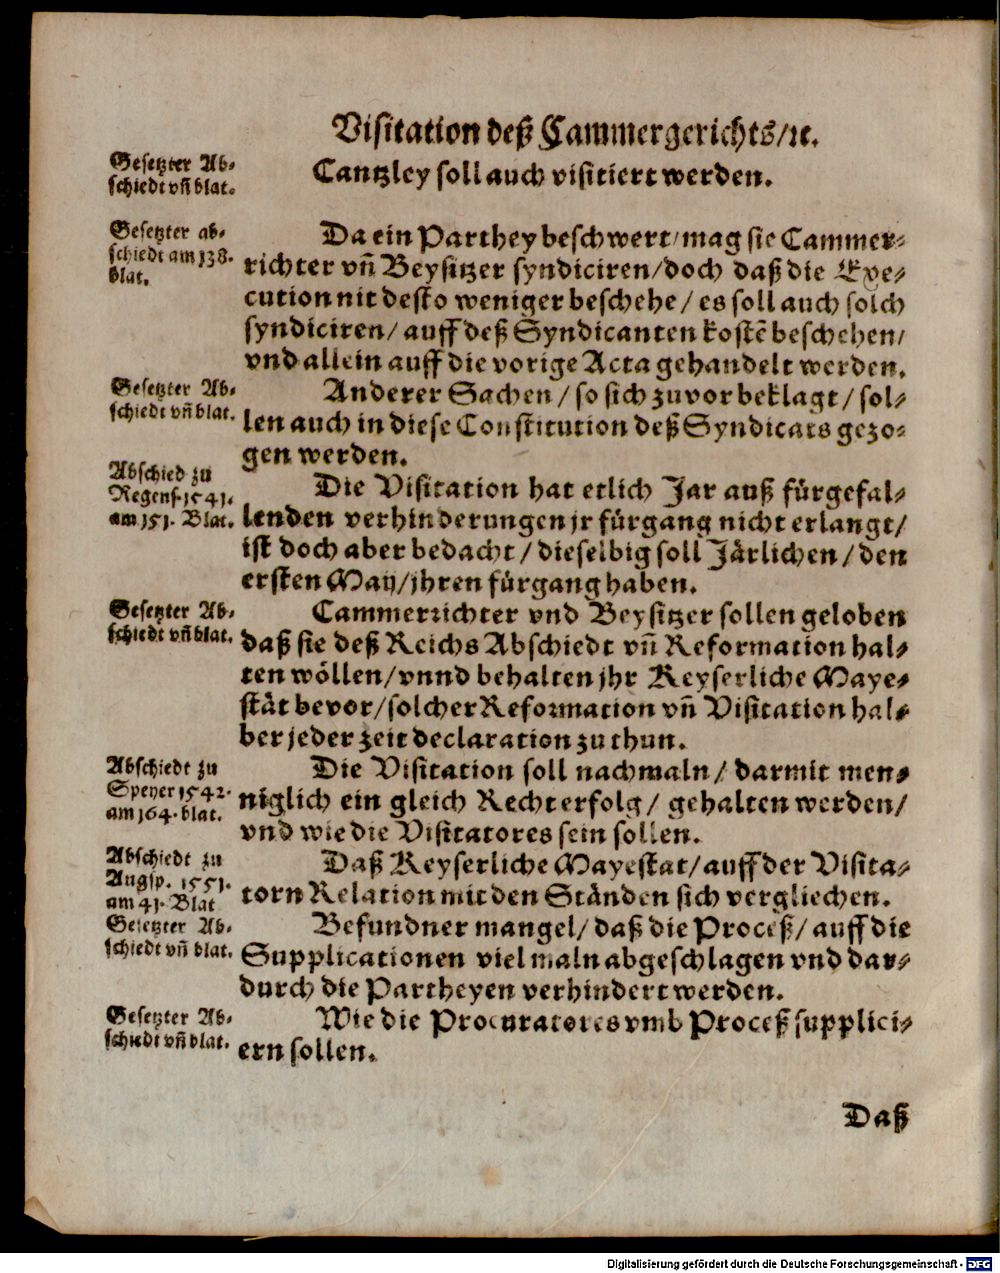 Visitation deß Cammergerichts/ꝛc.
Gesetzter Ab-
schiedt vñ blat.
Cantzley soll auch visitiert werden.
Gesetzter ab-
schiedt am 138.
blat.
Da ein Parthey beschwert/mag sie Cammer-
richter vñ Beysitzer syndiciren/doch daß die Exe-
cution nit desto weniger beschehe/es soll auch solch
syndiciren/auff deß Syndicanten kostē beschehen/
vnd allein auff die vorige Acta gehandelt werden.
Gesetzter Ab-
schiedt vñ blat.
Anderer Sachen/so sich zuvor beklagt/sol-
len auch in diese Constitution deß Syndicats gezo-
gen werden.
Abschied zu
Regensp. 1541.
am 151. Blat.
Die Visitation hat etlich Jar auß fürgefal-
lenden verhinderungen jr fürgang nicht erlangt/
ist doch aber bedacht/dieselbig soll Järlichen/den
ersten May/jhren fürgang haben.
Gesetzter Ab-
schiedt vñ blat.
Cammerrichter vnd Beysitzer sollen geloben
daß sie deß Reichs Abschiedt vñ Reformation hal-
ten wöllen/vnnd behalten jhr Keyserliche Maye-
stät bevor/solcher Reformation vñ Visitation hal-
ber jeder zeit declaration zu thun.
Abschiedt zu
Speyer 1542.
am 164. blat.
Die Visitation soll nachmaln/darmit men-
niglich ein gleich Recht erfolg/gehalten werden/
vnd wie die Visitatores sein sollen.
Abschiedt zu
Augsp. 1551.
am 41. Blat
Daß Keyserliche Mayestat/auff der Visita-
torn Relation mit den Ständen sich vergliechen.
Gesetzter Ab-
schiedt vñ blat.
Befundner mangel/daß die Proceß/auff die
Supplicationen viel maln abgeschlagen vnd dar-
durch die Partheyen verhindert werden.
Gesetzter Ab-
schiedt vñ blat.
Wie die Procuratores vmb Proceß supplici-
ern sollen.
Daß
Digitalisierung gefördert durch die Deutsche Forschungsgemeinschaft - DFG